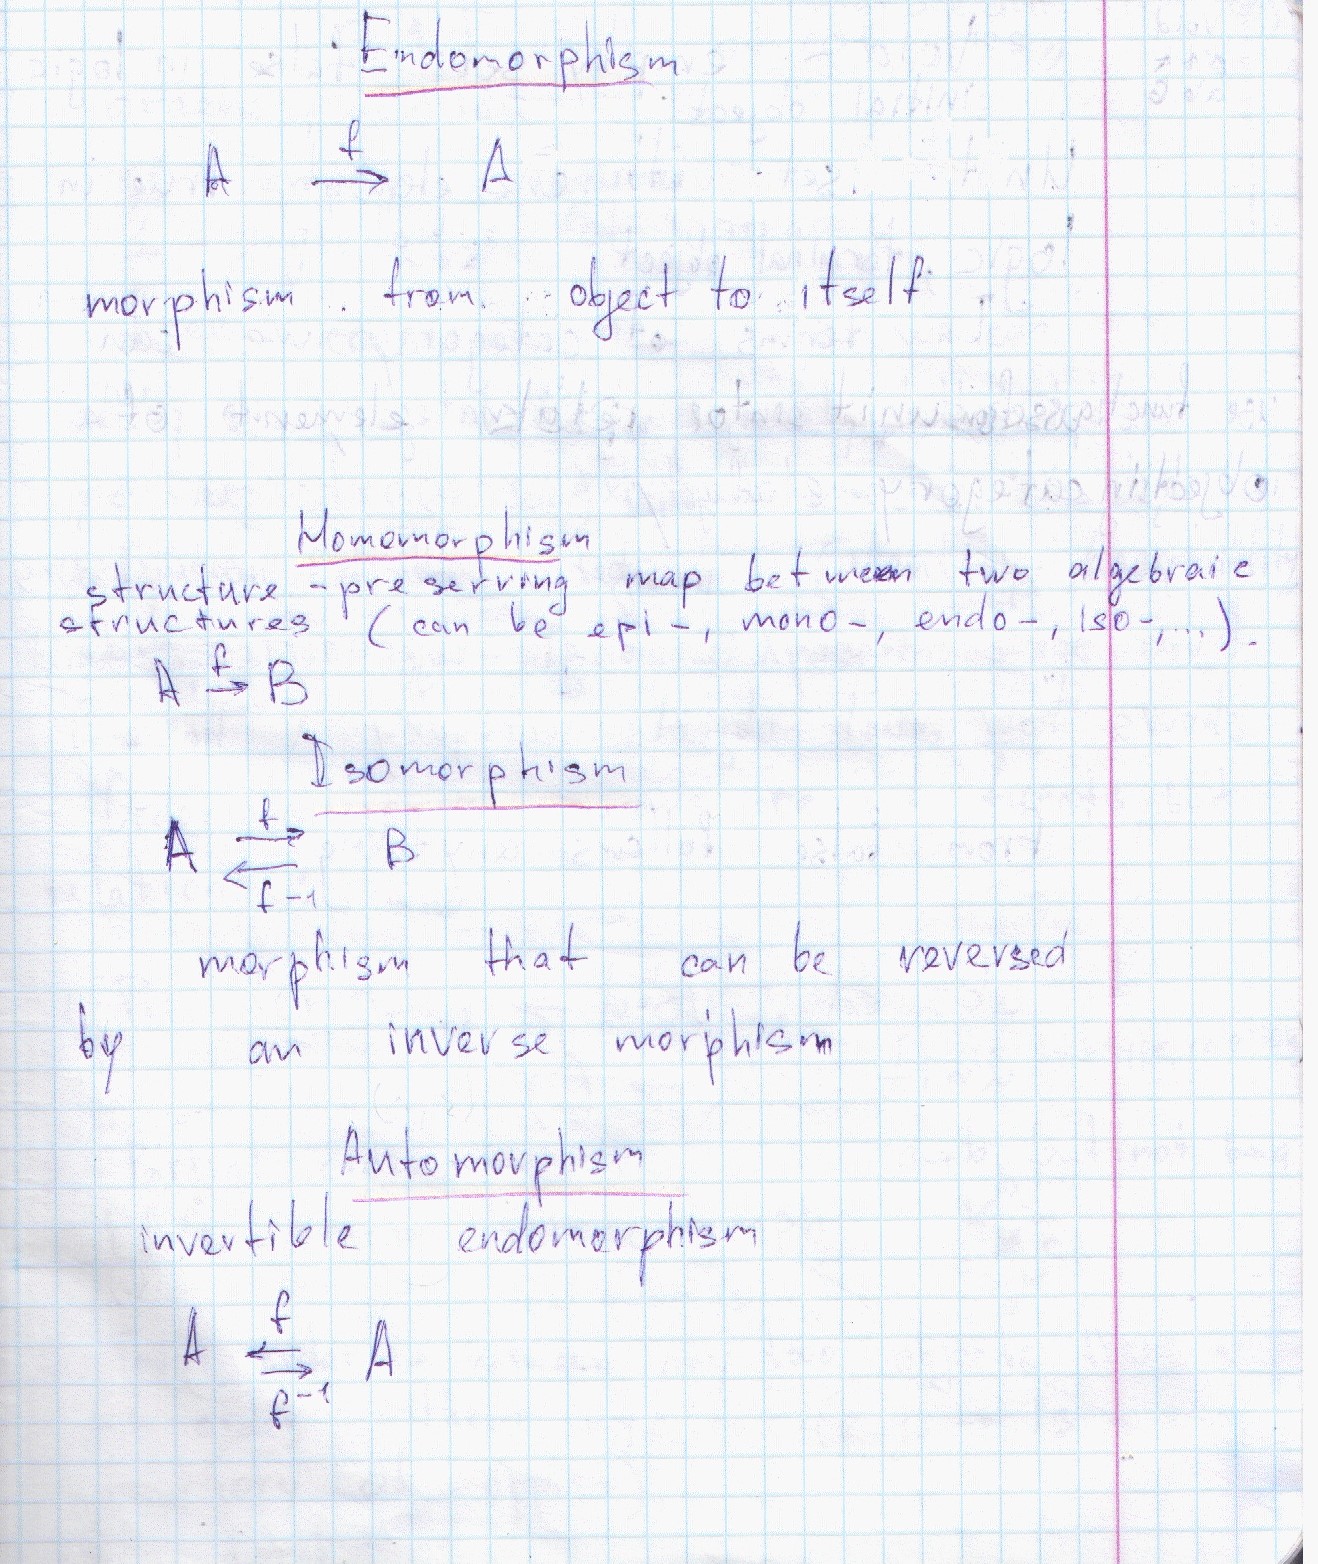 Endomorphism
f
A → A
morphism from object to itself
Homomorphism
structure-preserving map between two algebraic
structures (can be epi-, mono-, endo-, iso-,...).
f
A → B
Isomorphism
f
A ⇄ B
f-1
morphism that can be reversed
by an inverse morphism
Automorphism
invertible endomorphism
f
A ⇆ A
f-1